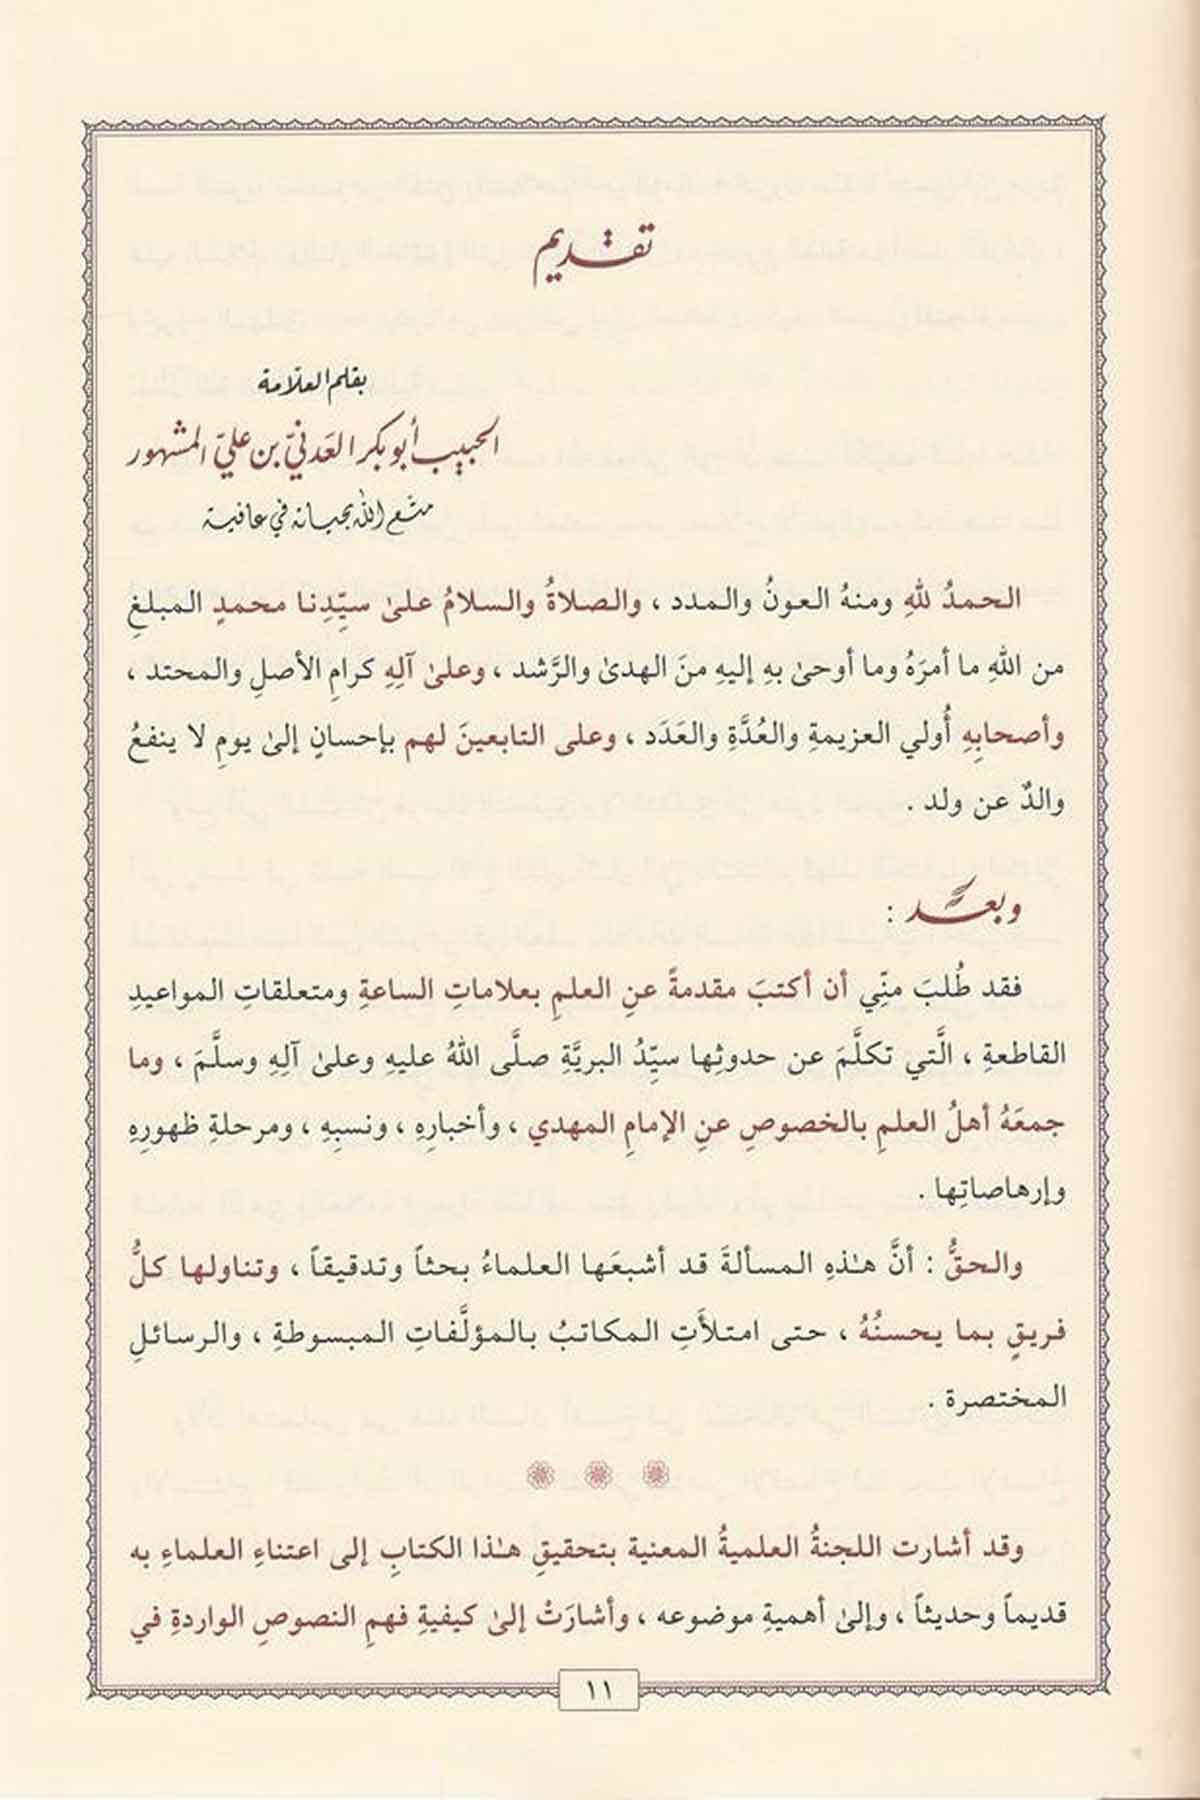 تقديم
بقلم العلامة
الحبيب أبو بكر العَدنيّ بن عليّ المشهور
متّع الله بحياته في عافية
الحمدُ للهِ ومنهُ العونُ والمدد ، والصلاةُ والسلامُ علىٰ سيِّدِنا محمدٍ المبلغِ
من اللهِ ما أمرَهُ وما أوحىٰ بهِ إليهِ منَ الهدىٰ والرَّشد ، وعلىٰ آلِهِ كرامِ الأصلِ والمحتد ،
وأصحابِهِ أُولي العزيمةِ والعُدَّةِ والعَدَد ، وعلى التابعينَ لهم بإحسانٍ إلىٰ يومِ لا ينفعُ
والدٌ عن ولد .
وبعـد :
فقد طُلبَ منِّي أن أكتبَ مقدمةً عنِ العلمِ بعلاماتِ الساعةِ ومتعلقاتِ المواعيدِ
القاطعةِ ، الَّتي تكلَّمَ عن حدوثِها سيِّدُ البريَّةِ صلَّى اللهُ عليهِ وعلىٰ آلِهِ وسلَّمَ ، وما
جمعَهُ أهلُ العلمِ بالخصوصِ عنِ الإمامِ المهدي ، وأخبارِهِ ، ونسبِهِ ، ومرحلةِ ظهورِهِ
وإرهاصاتِها .
والحقُّ : أنَّ هـٰذهِ المسألةَ قد أشبعَها العلماءُ بحثاً وتدقيقاً ، وتناولها كلُّ
فريقٍ بما يحسنُهُ ، حتى امتلأَتِ المكاتبُ بالمؤلَّفاتِ المبسوطةِ ، والرسائلِ
المختصرة .
وقد أشارت اللجنةُ العلميةُ المعنية بتحقيقِ هـٰذا الكتابِ إلى اعتناءِ العلماءِ به
قديماً وحديثاً ، وإلىٰ أهميةِ موضوعه ، وأشارَتْ إلىٰ كيفيةِ فهمِ النصوصِ الواردةِ في
١١